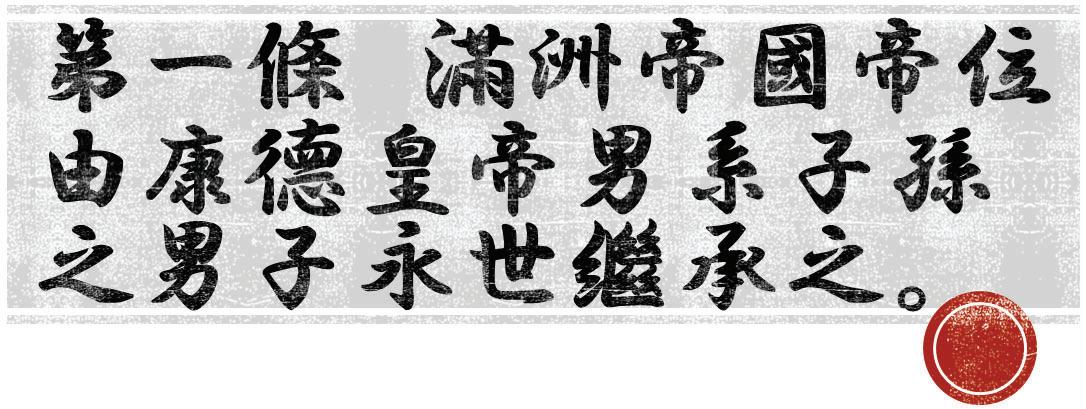 第一條　滿洲帝國帝位
由康德皇帝男系子孫
之男子永世繼承之。